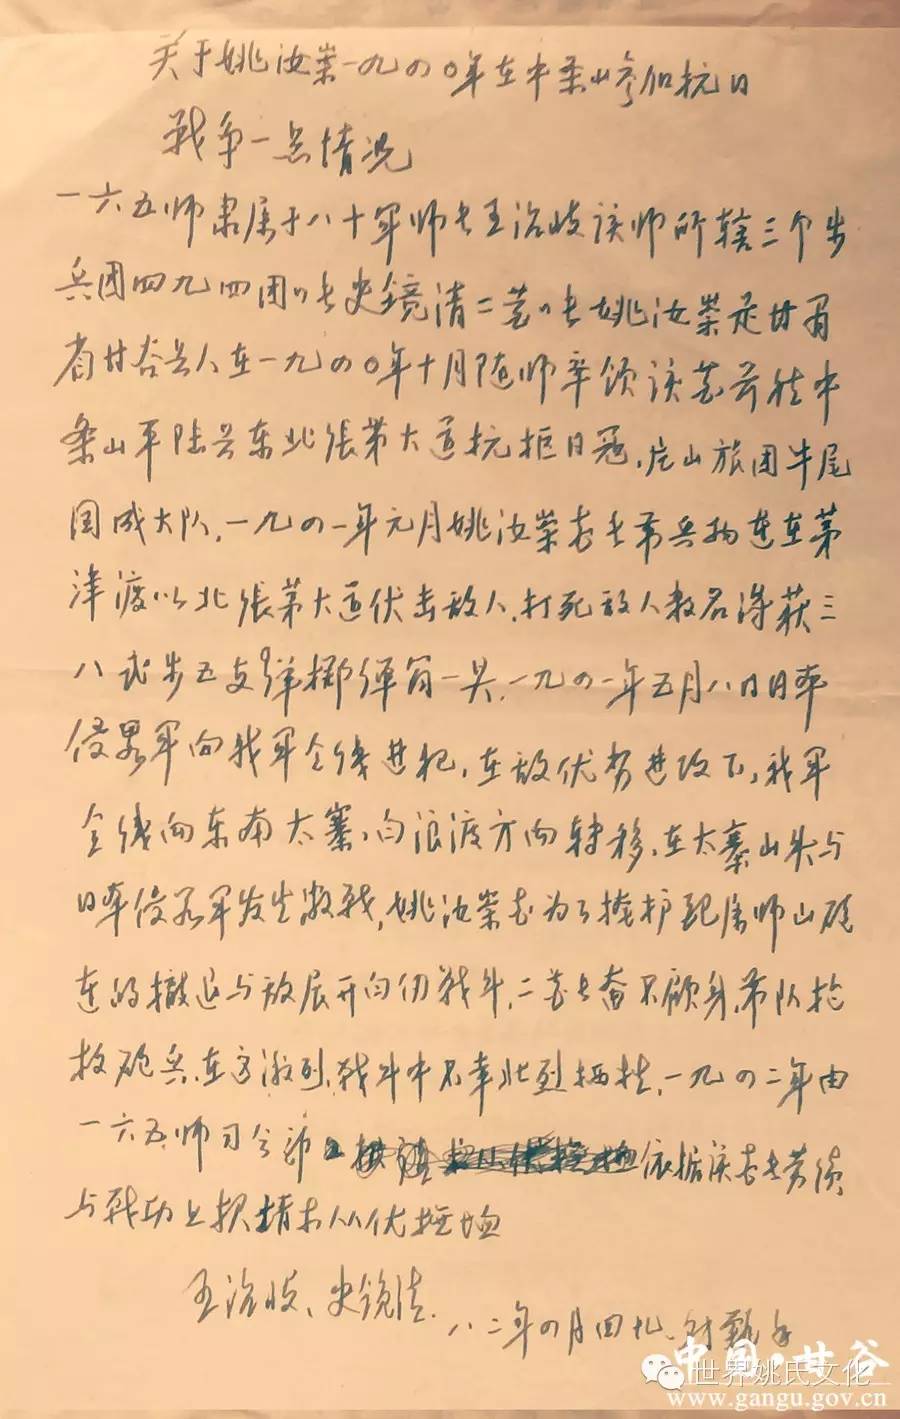 关于姚汝崇一九四〇年在中条山参加抗日
战争一点情况
一六五师隶属于八十军师长王治岐该师所辖三个步
兵团四九四团〃长史镜清二营〃长姚汝崇是甘肃
省甘谷县人在一九四〇年十月随师率领该营前往中
条山平陆县东北张茅大道抗拒日寇,山旅团牛尾
国成大队,一九四一年元月姚汝崇营长带兵于茅
津渡以北张茅大道伏击敌人,打死敌人数名得获三
八式步五支弹掷弹筒一具,一九四一年五月八日日本
侵略军向我军全线进犯,在敌优势进攻下,我军
全线向东南太寨、白浪渡方向转移,在太寨山头与
日本侵略军发生激战,姚汝崇营为了掩护配属师山砲
连的撤退与敌展开白刃战斗,二营长奋不顾身,带队抢
救砲兵,在激烈战斗中不幸壮烈牺牲,一九四二年由
一六五师司令部依据该营长劳绩
与战功上报请求从优抚恤
王治岐、史镜清.
八二年四月四日
中国·甘谷
世界姚氏文化
www.gangu.gov.cn